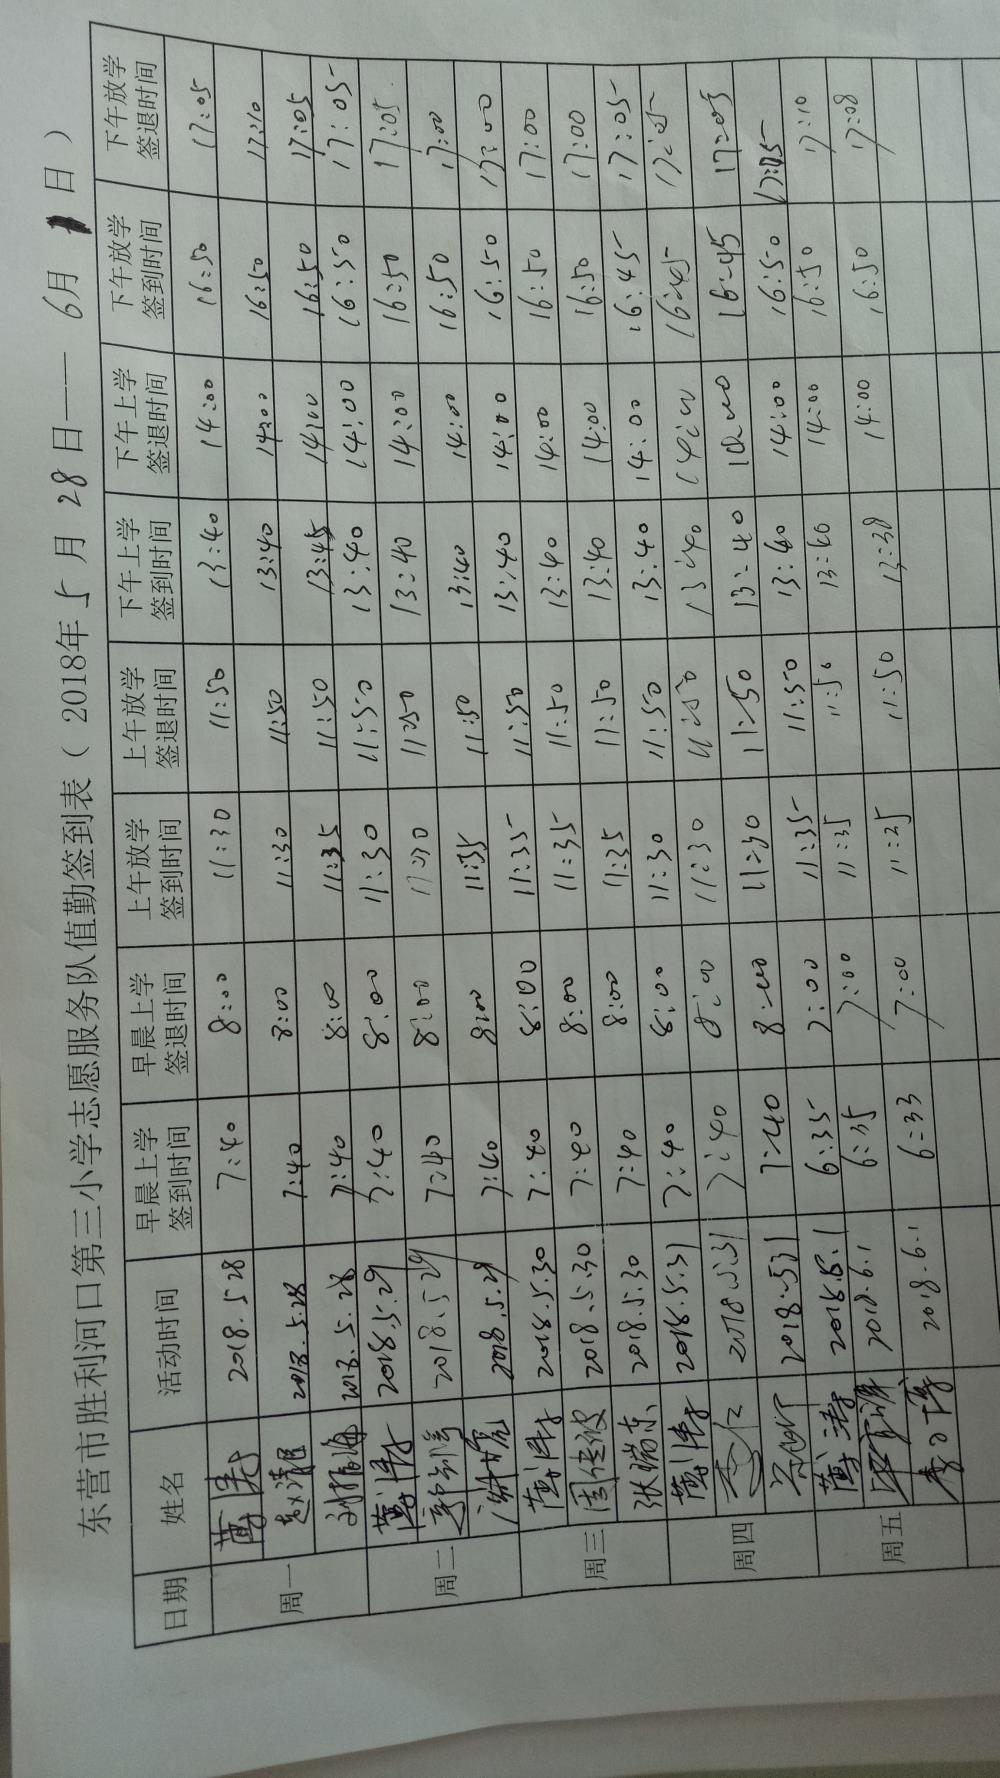 东营市胜利河口第三小学志愿服务队值勤签到表（2018年5月28日——6月1日）
日期 姓名 活动时间 早晨上学签到时间 早晨上学签退时间 上午放学签到时间 上午放学签退时间 下午上学签到时间 下午上学签退时间 下午放学签到时间 下午放学签退时间
周一 2018.5.28 7:40 8:00 11:30 11:50 13:40 14:00 16:50 17:05
2018.5.28 7:40 8:00 11:30 11:50 13:40 14:00 16:50 17:10
2018.5.28 7:40 8:00 11:35 11:50 13:45 14:00 16:50 17:05
周二 2018.5.29 7:40 8:00 11:30 11:50 13:40 14:00 16:50 17:05
2018.5.29 7:40 8:00 11:30 11:50 13:40 14:00 16:50 17:05
2018.5.29 7:40 8:00 11:35 11:50 13:40 14:00 16:50 17:00
周三 2018.5.30 7:40 8:00 11:35 11:50 13:40 14:00 16:50 17:00
2018.5.30 7:40 8:00 11:35 11:50 13:40 14:00 16:50 17:00
张瑞东 2018.5.30 7:40 8:00 11:35 11:50 13:40 14:00 16:50 17:00
周四 2018.5.31 7:40 8:00 11:30 11:50 13:40 14:00 16:45 17:05
2018.5.31 7:40 8:00 11:30 11:50 13:40 14:00 16:45 17:05
2018.5.31 7:40 8:00 11:30 11:50 13:40 16:45 17:05
周五 2018.6.1 6:35 7:00 11:35 11:50 13:40 14:00 16:50 17:05
2018.6.1 6:35 7:00 11:35 11:50 13:40 14:00 16:50 17:10
2018.6.1 6:33 7:00 11:35 11:50 13:38 14:00 16:50 17:08